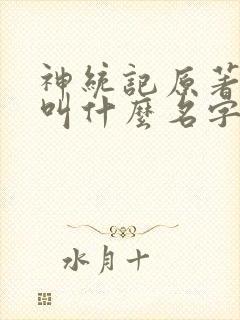 神統記原著
叫什麼名字
水月十